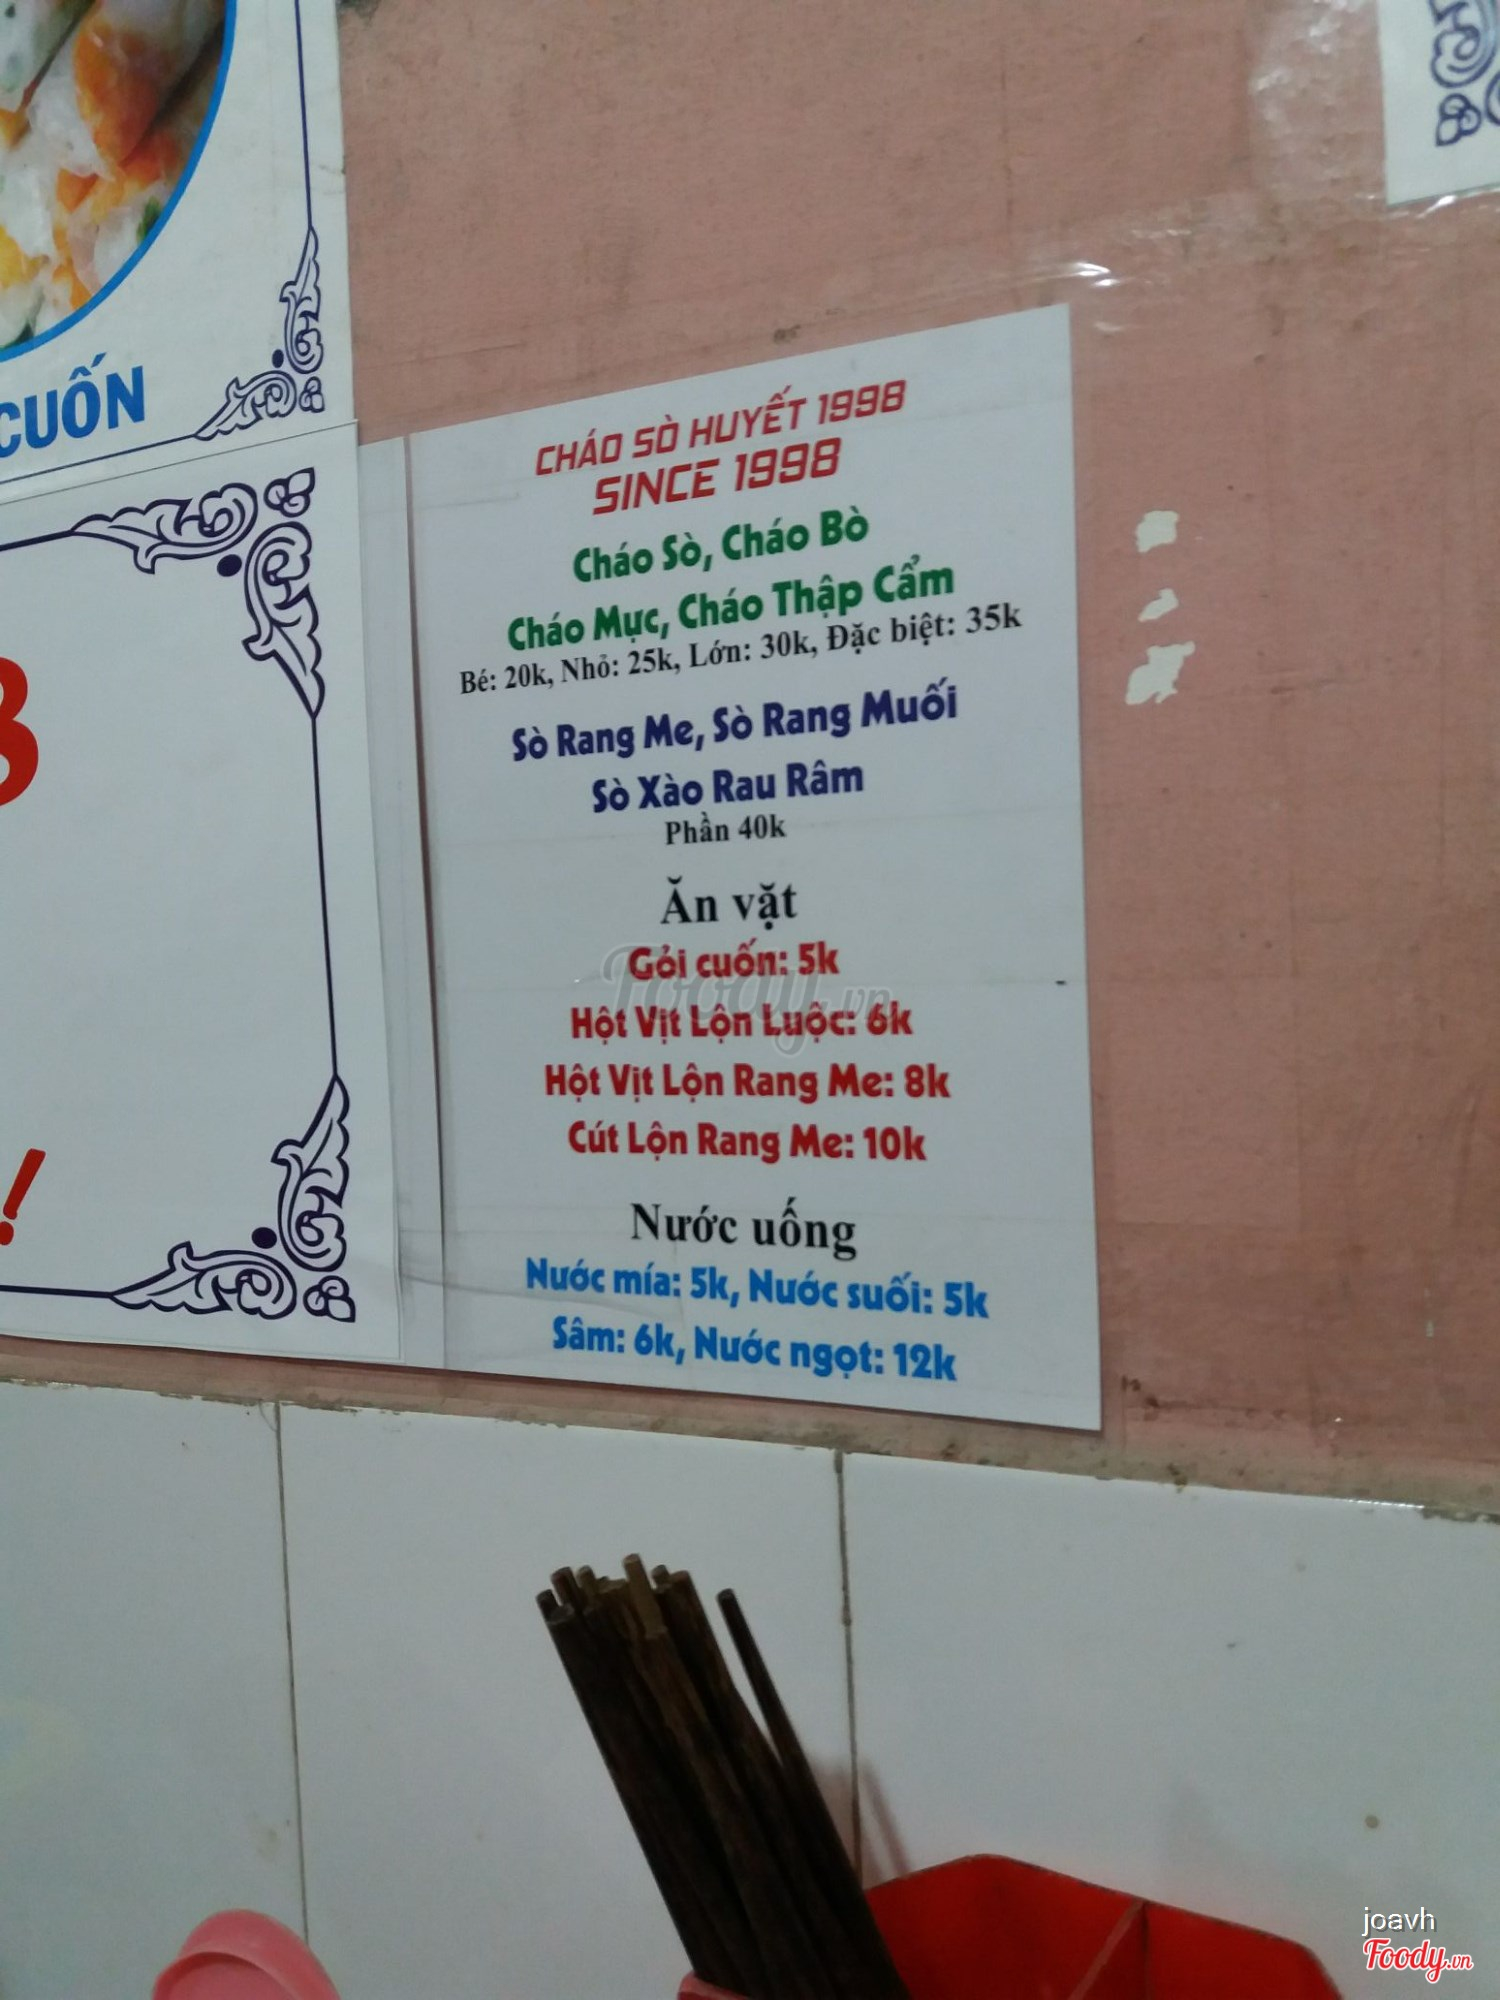 CUỐN
8
!
CHÁO SÒ HUYẾT 1998
SINCE 1998
Cháo Sò, Cháo Bò
Cháo Mực, Cháo Thập Cẩm
Bé: 20k, Nhỏ: 25k, Lớn: 30k, Đặc biệt: 35k
Sò Rang Me, Sò Rang Muối
Sò Xào Rau Râm
Phần 40k
Ăn vặt
Gỏi cuốn: 5k
Hột Vịt Lộn Luộc: 6k
Hột Vịt Lộn Rang Me: 8k
Cút Lộn Rang Me: 10k
Nước uống
Nước mía: 5k, Nước suối: 5k
Sâm: 6k, Nước ngọt: 12k
Foody.vn
joavh
Foody.vn